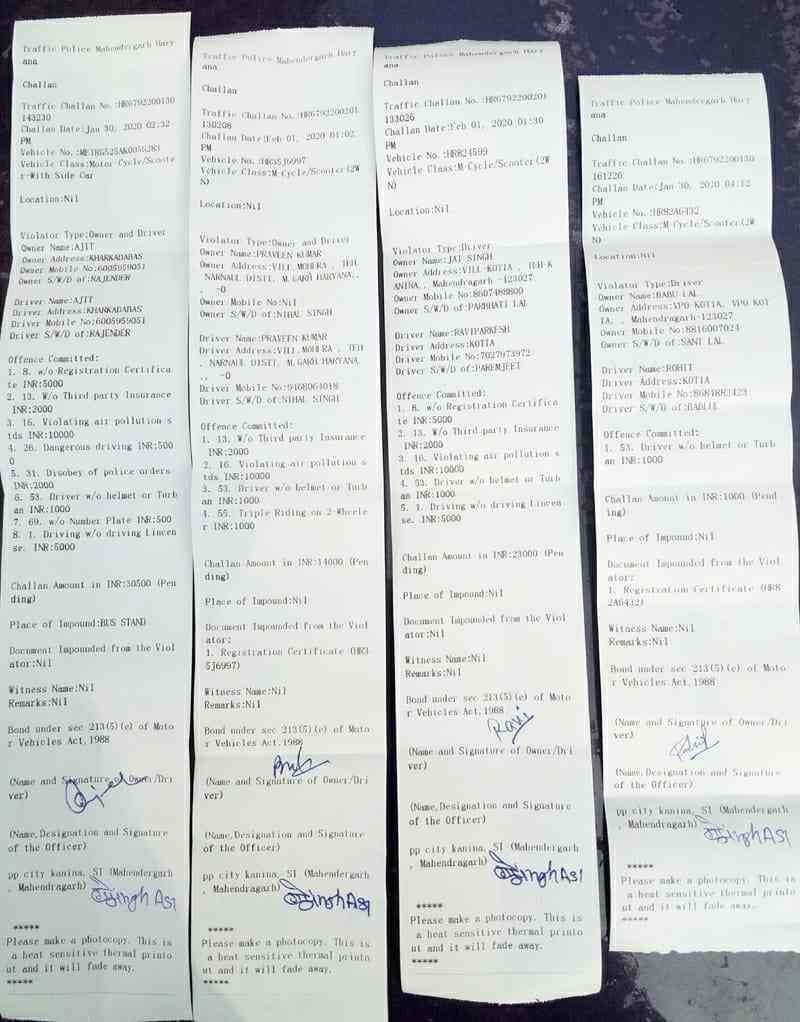 Traffic Police Mahendergarh Hary
ana
Challan
Traffic Challan No.:HR6792200130
143230
Challan Date:Jan 30, 2020 02:32
PM
Vehicle No.
Vehicle Class:Motor Cycle/Scoote
r-With Side Car
Location:Nil
Violator Type:Owner and Driver
Owner Name:AJIT
Owner Address:KHARKADABAS
Owner Mobile No:6005959051
Owner S/W/D of:RAJENDER
Driver Name:AJIT
Driver Address:KHARKADABAS
Driver Mobile No:6005959051
Driver S/W/D of:RAJENDER
Offence Committed:
1. 8. w/o Registration Certifica
te INR:5000
2. 13. W/o Third party Insurance
INR:2000
3. 16. Violating air pollution s
tds INR:10000
4. 26. Dangerous driving INR:500
0
5. 31. Disobey of police orders
INR:2000
6. 53. Driver w/o helmet or Turb
an INR:1000
7. 69. w/o Number Plate INR:500
8. 1. Driving w/o driving Lincen
se. INR:5000
Challan Amount in INR:30500 (Pen
ding)
Place of Impound:BUS STAND
Document Impounded from the Viol
ator:Nil
Witness Name:Nil
Remarks:Nil
Bond under sec 213(5)(e) of Moto
r Vehicles Act,1988
(Name and Signature of Owner/Dri
ver)
(Name,Designation and Signature
of the Officer)
pp city kanina, SI (Mahendergarh
, Mahendragarh)
Singh ASI
*****
Please make a photocopy. This is
a heat sensitive thermal printo
ut and it will fade away.
*****
Traffic Police Mahendergarh Hary
ana
Challan
Traffic Challan No.:HR6792200201
130208
Challan Date:Feb 01, 2020 01:02
PM
Vehicle No.:HR35J6997
Vehicle Class:M-Cycle/Scooter(2W
N)
Location:Nil
Violator Type:Owner and Driver
Owner Name:PRAVEEN KUMAR
Owner Address:VILL MOHLRA , TEH
NARNAUL DISTT. M.GARH HARYANA,.
. -0
Owner Mobile No:Nil
Owner S/W/D of:NIHAL SINGH
Driver Name:PRAVEEN KUMAR
Driver Address:VILL MOHLRA , TEH
. NARNAUL DISTT. M.GARH HARYANA,
., -0
Driver Mobile No:9468064018
Driver S/W/D of:NIHAL SINGH
Offence Committed:
1. 13. W/o Third party Insurance
INR:2000
2. 16. Violating air pollution s
tds INR:10000
3. 53. Driver w/o helmet or Turb
an INR:1000
4. 55. Triple Riding on 2-Wheele
r INR:1000
Challan Amount in INR:14000 (Pen
ding)
Place of Impound:Nil
Document Impounded from the Viol
ator:
1. Registration Certificate (HR3
5J6997)
Witness Name:Nil
Remarks:Nil
Bond under sec 213(5)(e) of Moto
r Vehicles Act,1988
(Name and Signature of Owner/Dri
ver)
(Name,Designation and Signature
of the Officer)
pp city kanina, SI (Mahendergarh
, Mahendragarh)
Singh ASI
*****
Please make a photocopy. This is
a heat sensitive thermal printo
ut and it will fade away.
*****
Traffic Police Mahendergarh Hary
ana
Challan
Traffic Challan No.:HR6792200201
133026
Challan Date:Feb 01, 2020 01:30
PM
Vehicle No.:HR824599
Vehicle Class:M-Cycle/Scooter(2W
N)
Location:Nil
Violator Type:Driver
Owner Name:JAI SINGH
Owner Address:VILL-KOTIA , TEH-K
ANINA,. Mahendragarh -123027
Owner Mobile No:8607488800
Owner S/W/D of:PARBHATI LAL
Driver Name:RAVIPARKESH
Driver Address:KOTIA
Driver Mobile No:7027973972
Driver S/W/D of:PAREMJEET
Offence Committed:
1. 8. w/o Registration Certifica
te INR:5000
2. 13. W/o Third party Insurance
INR:2000
3. 16. Violating air pollution s
tds INR:10000
4. 53. Driver w/o helmet or Turb
an INR:1000
5. 1. Driving w/o driving Lincen
se. INR:5000
Challan Amount in INR:23000 (Pen
ding)
Place of Impound:Nil
Document Impounded from the Viol
ator:Nil
Witness Name:Nil
Remarks:Nil
Bond under sec 213(5)(e) of Moto
r Vehicles Act,1988
Ravi
(Name and Signature of Owner/Dri
ver)
(Name,Designation and Signature
of the Officer)
pp city kanina, SI (Mahendergarh
, Mahendragarh)
Singh ASI
*****
Please make a photocopy. This is
a heat sensitive thermal printo
ut and it will fade away.
*****
Traffic Police Mahendergarh Hary
ana
Challan
Traffic Challan No.:HR6792200130
161226
Challan Date:Jan 30, 2020 04:12
PM
Vehicle No.:HR82A6432
Vehicle Class:M-Cycle/Scooter(2W
N)
Location:Nil
Violator Type:Driver
Owner Name:BABU LAL
Owner Address:VPO KOTIA, VPO KOT
IA, . Mahendragarh-123027
Owner Mobile No:8816007024
Owner S/W/D of:SANT LAL
Driver Name:ROHIT
Driver Address:KOTIA
Driver Mobile No:8684882423
Driver S/W/D of:
Offence Committed:
1. 53. Driver w/o helmet or Turb
an INR:1000
Challan Amount in INR:1000 (Pend
ing)
Place of Impound:Nil
Document Impounded from the Viol
ator:
1. Registration Certificate (HR8
2A6432)
Witness Name:Nil
Remarks:Nil
Bond under sec 213(5)(e) of Moto
r Vehicles Act,1988
(Name and Signature of Owner/Dri
ver)
(Name,Designation and Signature
of the Officer)
pp city kanina, SI (Mahendergarh
, Mahendragarh)
Singh ASI
*****
Please make a photocopy. This is
a heat sensitive thermal printo
ut and it will fade away.
*****